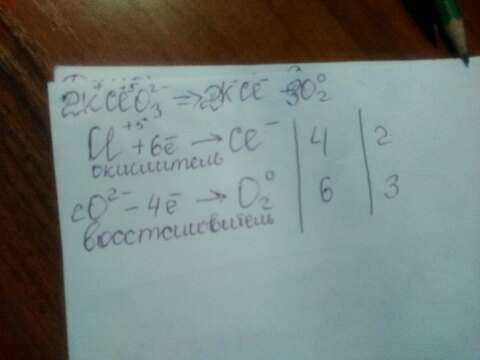 2KClO₃ => 2KCl⁻ + 3O₂⁰
Cl⁺⁵ + 6e̅ → Cl⁻ | 4 | 2
окислитель
2O²⁻ - 4e̅ → O₂⁰ | 6 | 3
восстановитель